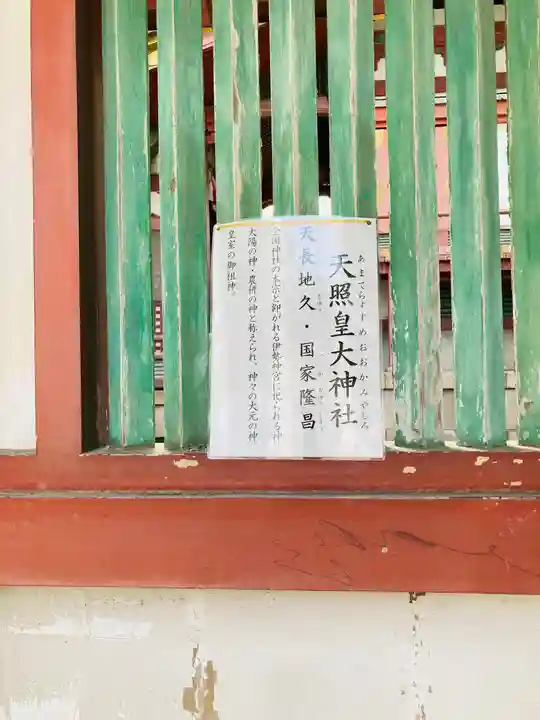 天照皇大神社
あまてらすすめおおかみやしろ
天長地久・国家隆昌
全国神社の大宗と仰がれる伊勢神宮に祀られる神
太陽の神・農耕の神と称えられ、神々の大元の神
皇室の御祖神。